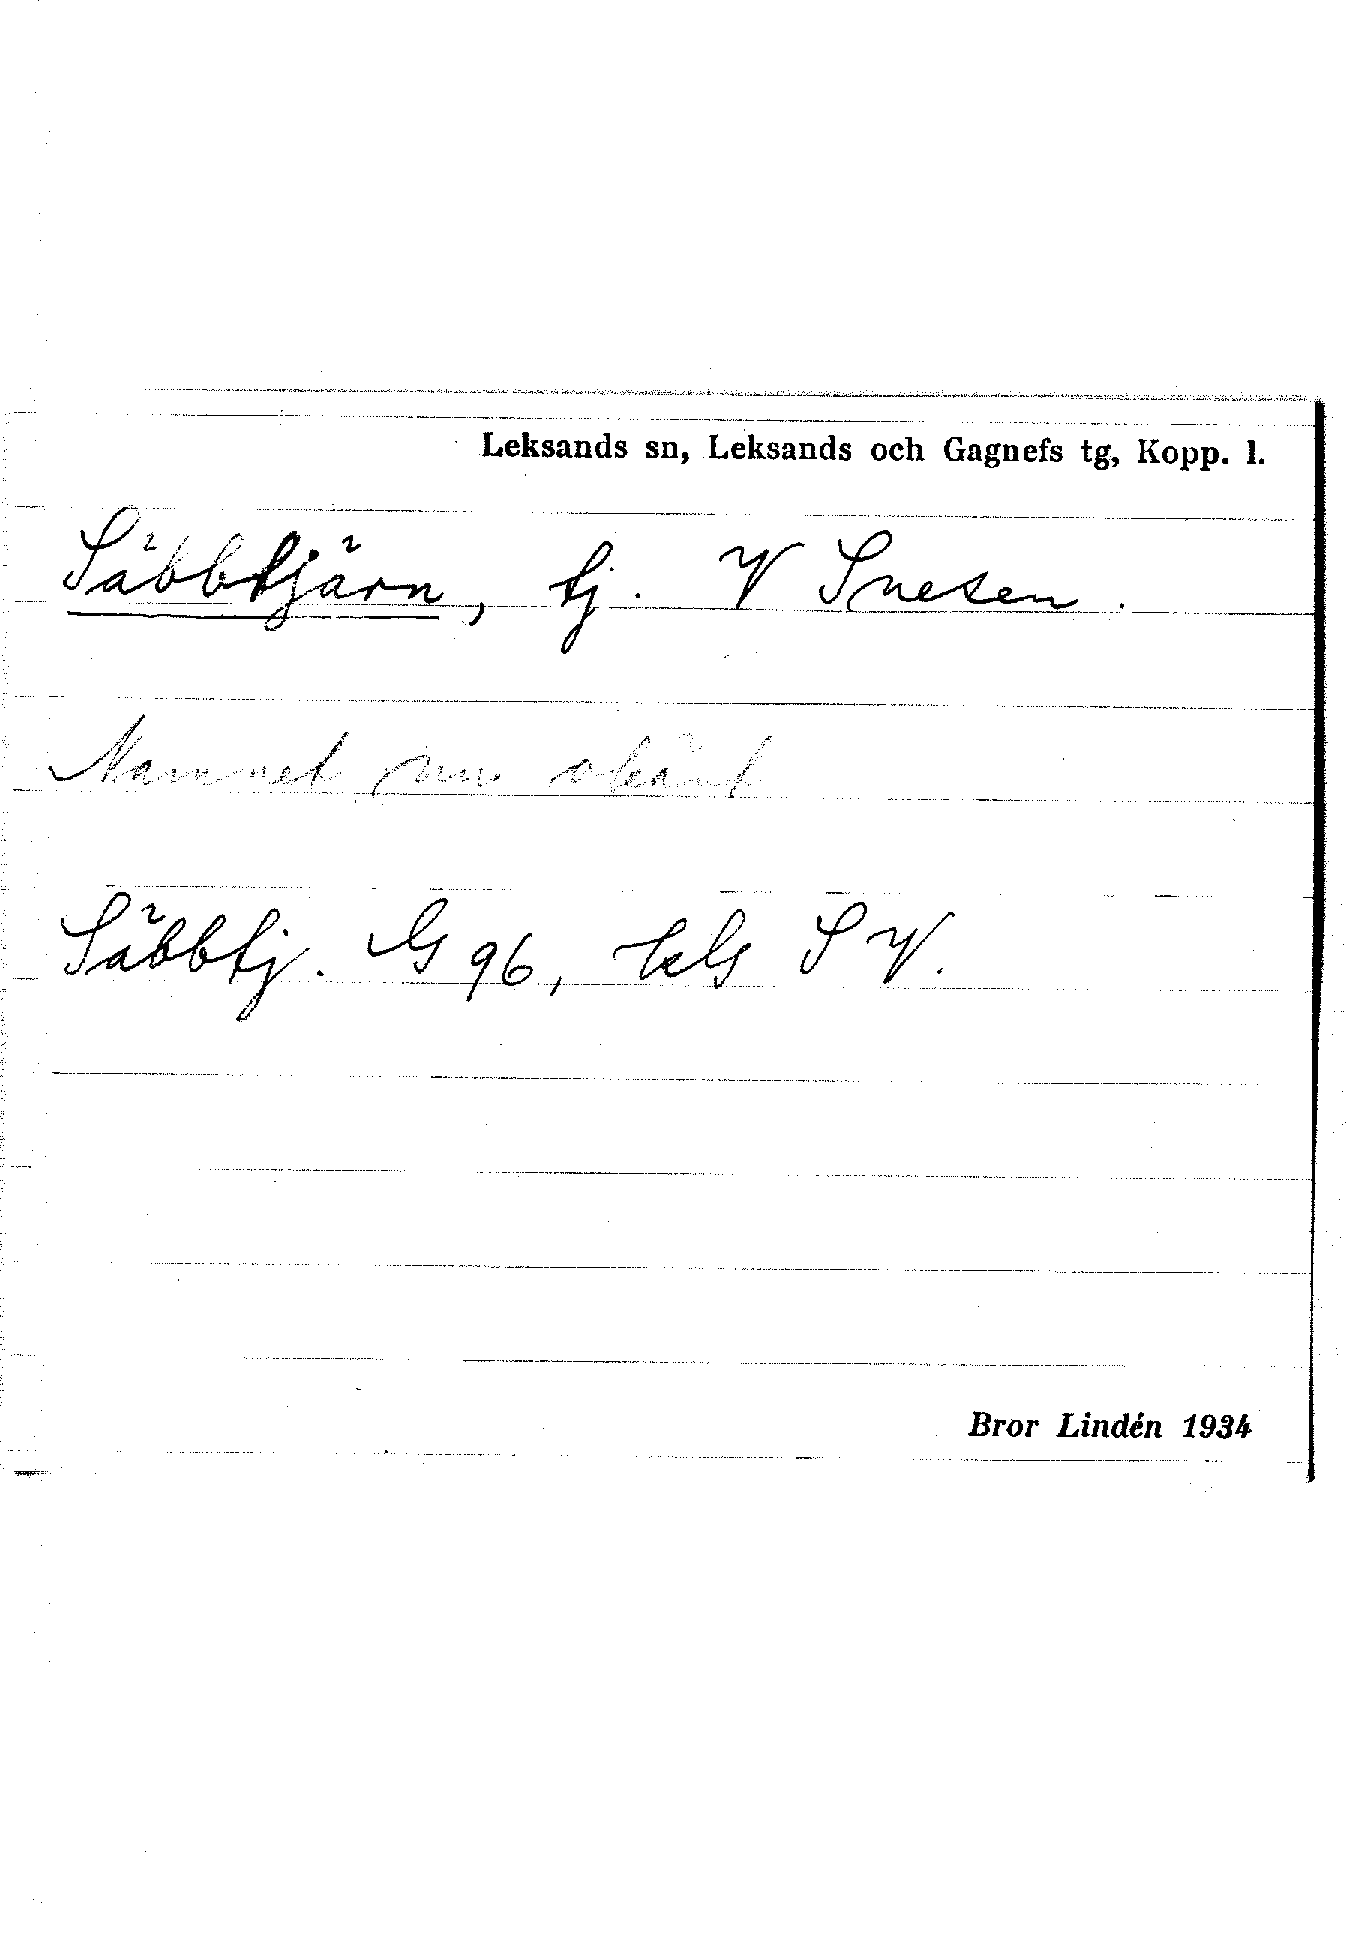 Leksands sn, Leksands och Gagnefs tg, Kopp. l.
Säbbtjärn, tj. V Snesen.
Namnet nu okänt
Säbbtj. G 96, kls S V.
Bror Lindén 1934